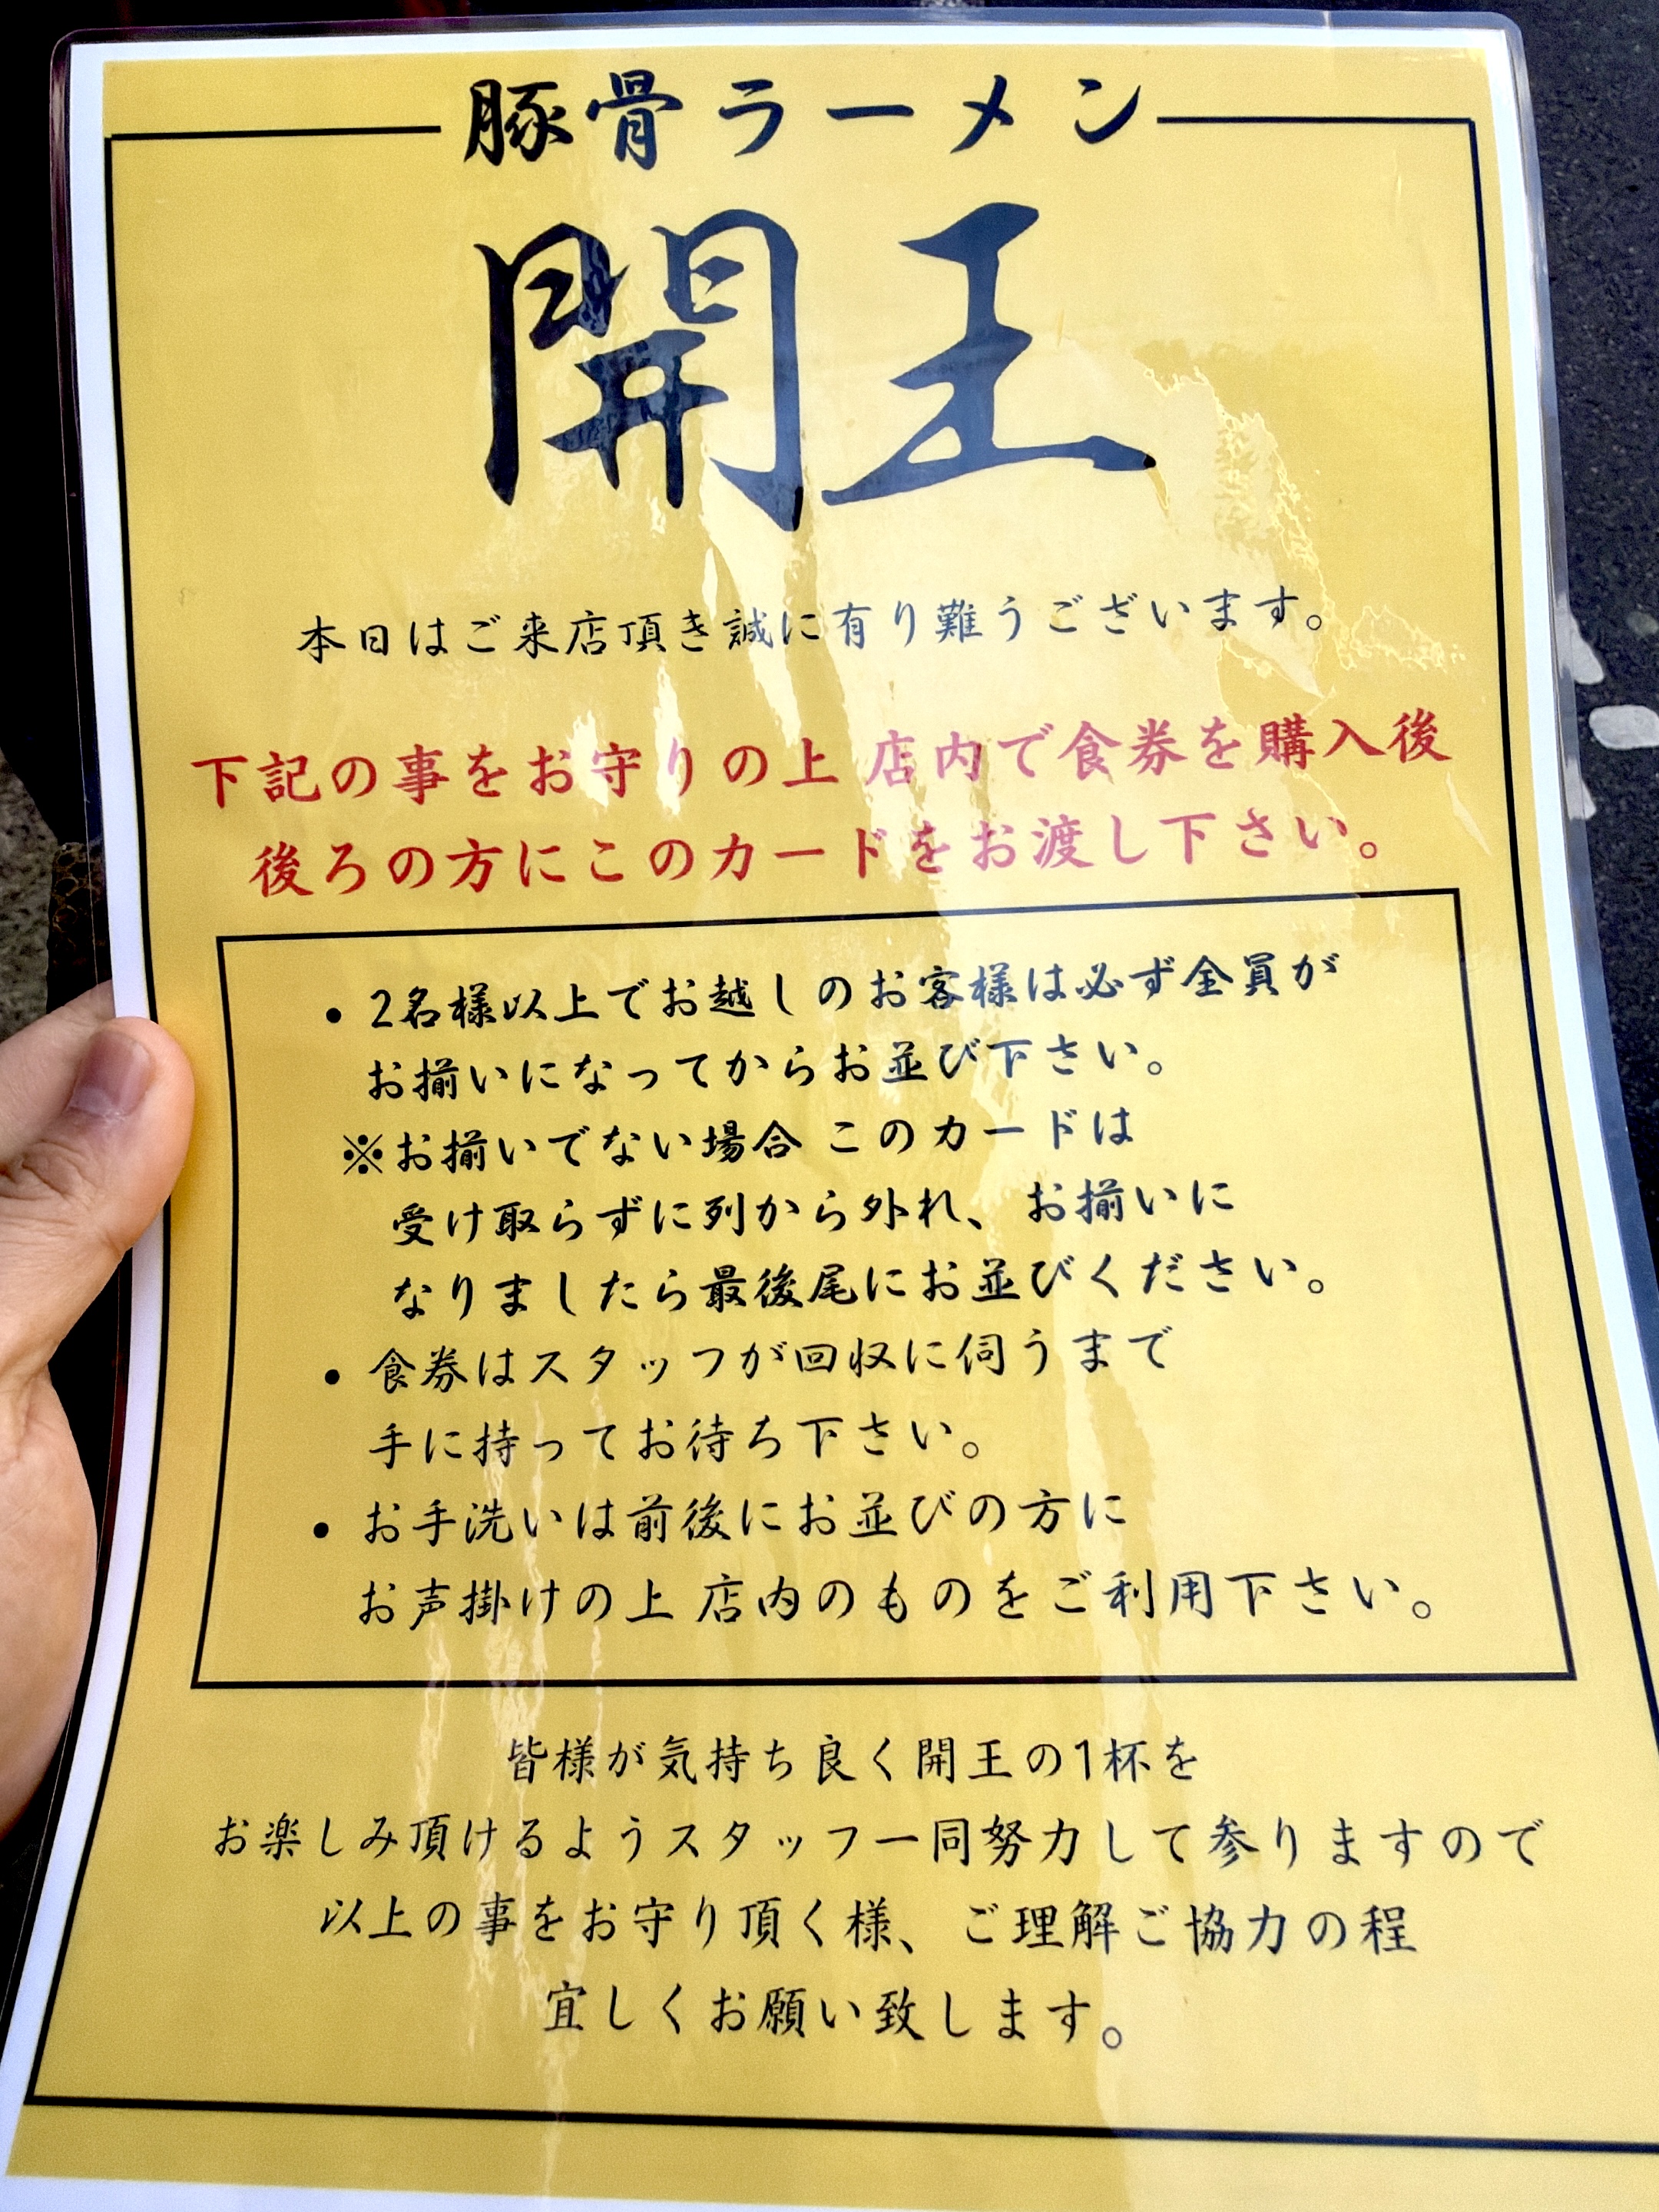 豚骨ラーメン
開王
本日はご来店頂き誠に有り難うございます。
下記の事をお守りの上 店内で食券を購入後
後ろの方にこのカードをお渡し下さい。
・2名様以上でお越しのお客様は必ず全員が
お揃いになってからお並び下さい。
※お揃いでない場合 このカードは
受け取らずに列から外れ、お揃いに
なりましたら最後尾にお並びください。
・食券はスタッフが回収に伺うまで
手に持ってお待ち下さい。
・お手洗いは前後にお並びの方に
お声掛けの上 店内のものをご利用下さい。
皆様が気持ち良く開王の1杯を
お楽しみ頂けるようスタッフ一同努力して参りますので
以上の事をお守り頂く様、ご理解ご協力の程
宜しくお願い致します。